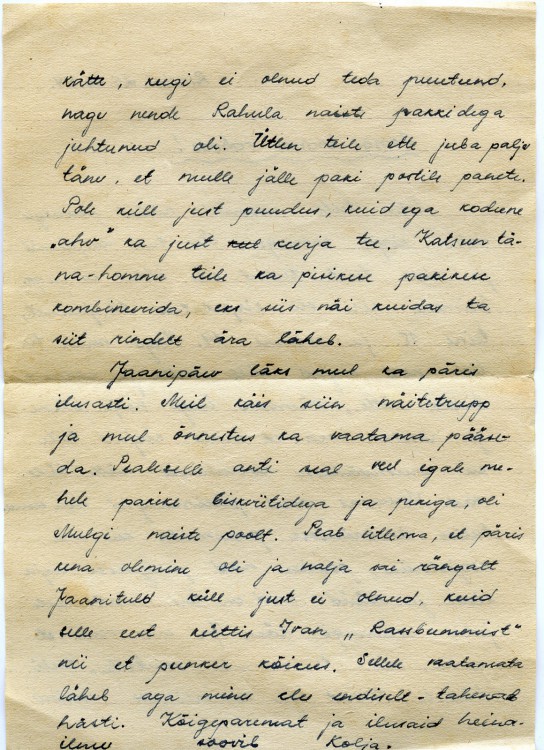 kätte, keegi ei olnud teda puutund,
nagu nende Rahula naiste pakkidega
juhtunud oli. Ütlen teile ette juba palju
tänu, et mulle jälle paki postile panete.
Pole küll just puudus, kuid ega kodune
„ahv" ka just kurja tee. Katsun tä-
na-homme teile ka pisikese pakikese
kombineerida, eks siis näi kuidas ta
siit rindelt ära läheb.
Jaanipäev läks mul ka päris
ilusasti. Meil käis siin näitetrupp
ja mul õnnestus ka vaatama pääse-
da. Pealeselle anti seal veel igale me-
hele pakike biskviitidega ja, oli
Mulgi naiste poolt. Peab ütlema, et päris
tena olemine oli ja nalja sai rängalt
Jaanituld küll just ei olnud, kuid
selle eest küttis Ivan „Rassbummist"
nii et punker kõikus. Sellele vaatamata
läheb aga minu elu endiselt - 
hästi. Kõigeparemat ja ilusaid heina-
ilmu soovib Kolja.